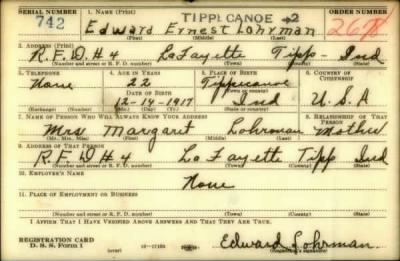 SERIAL NUMBER 1. NAME (Print) TIPPECANOE 2 ORDER NUMBER
742 Edward Ernest Lohrman 2698
(First) (Middle) (Last)
2. ADDRESS (Print)
R.F.D.#4 LaFayette Tipp- Ind
(Number and street or R. F. D. number) (Town) (County) (State)
3. TELEPHONE 4. AGE IN YEARS 5. PLACE OF BIRTH 6. COUNTRY OF CITIZENSHIP
None 22 Tippecanoe
DATE OF BIRTH (Town or county)
12-14-1917 Ind U.S.A
(Exchange) (Number) (Mo.) (Day) (Yr.) (State or country)
7. NAME OF PERSON WHO WILL ALWAYS KNOW YOUR ADDRESS 8. RELATIONSHIP OF THAT PERSON
Mrs Margaret Lohrman Mother
(Mr., Mrs., Miss) (First) (Middle) (Last)
9. ADDRESS OF THAT PERSON
R.F.D #4 La Fayette Tipp Ind
(Number and street or R. F. D. number) (Town) (County) (State)
10. EMPLOYER'S NAME
None
11. PLACE OF EMPLOYMENT OR BUSINESS
(Number and street or R. F. D. number) (Town) (County) (State)
I AFFIRM THAT I HAVE VERIFIED ABOVE ANSWERS AND THAT THEY ARE TRUE.
REGISTRATION CARD
D. S. S. FORM 1 (over) Edward Lohrman.
(Registrant's signature)